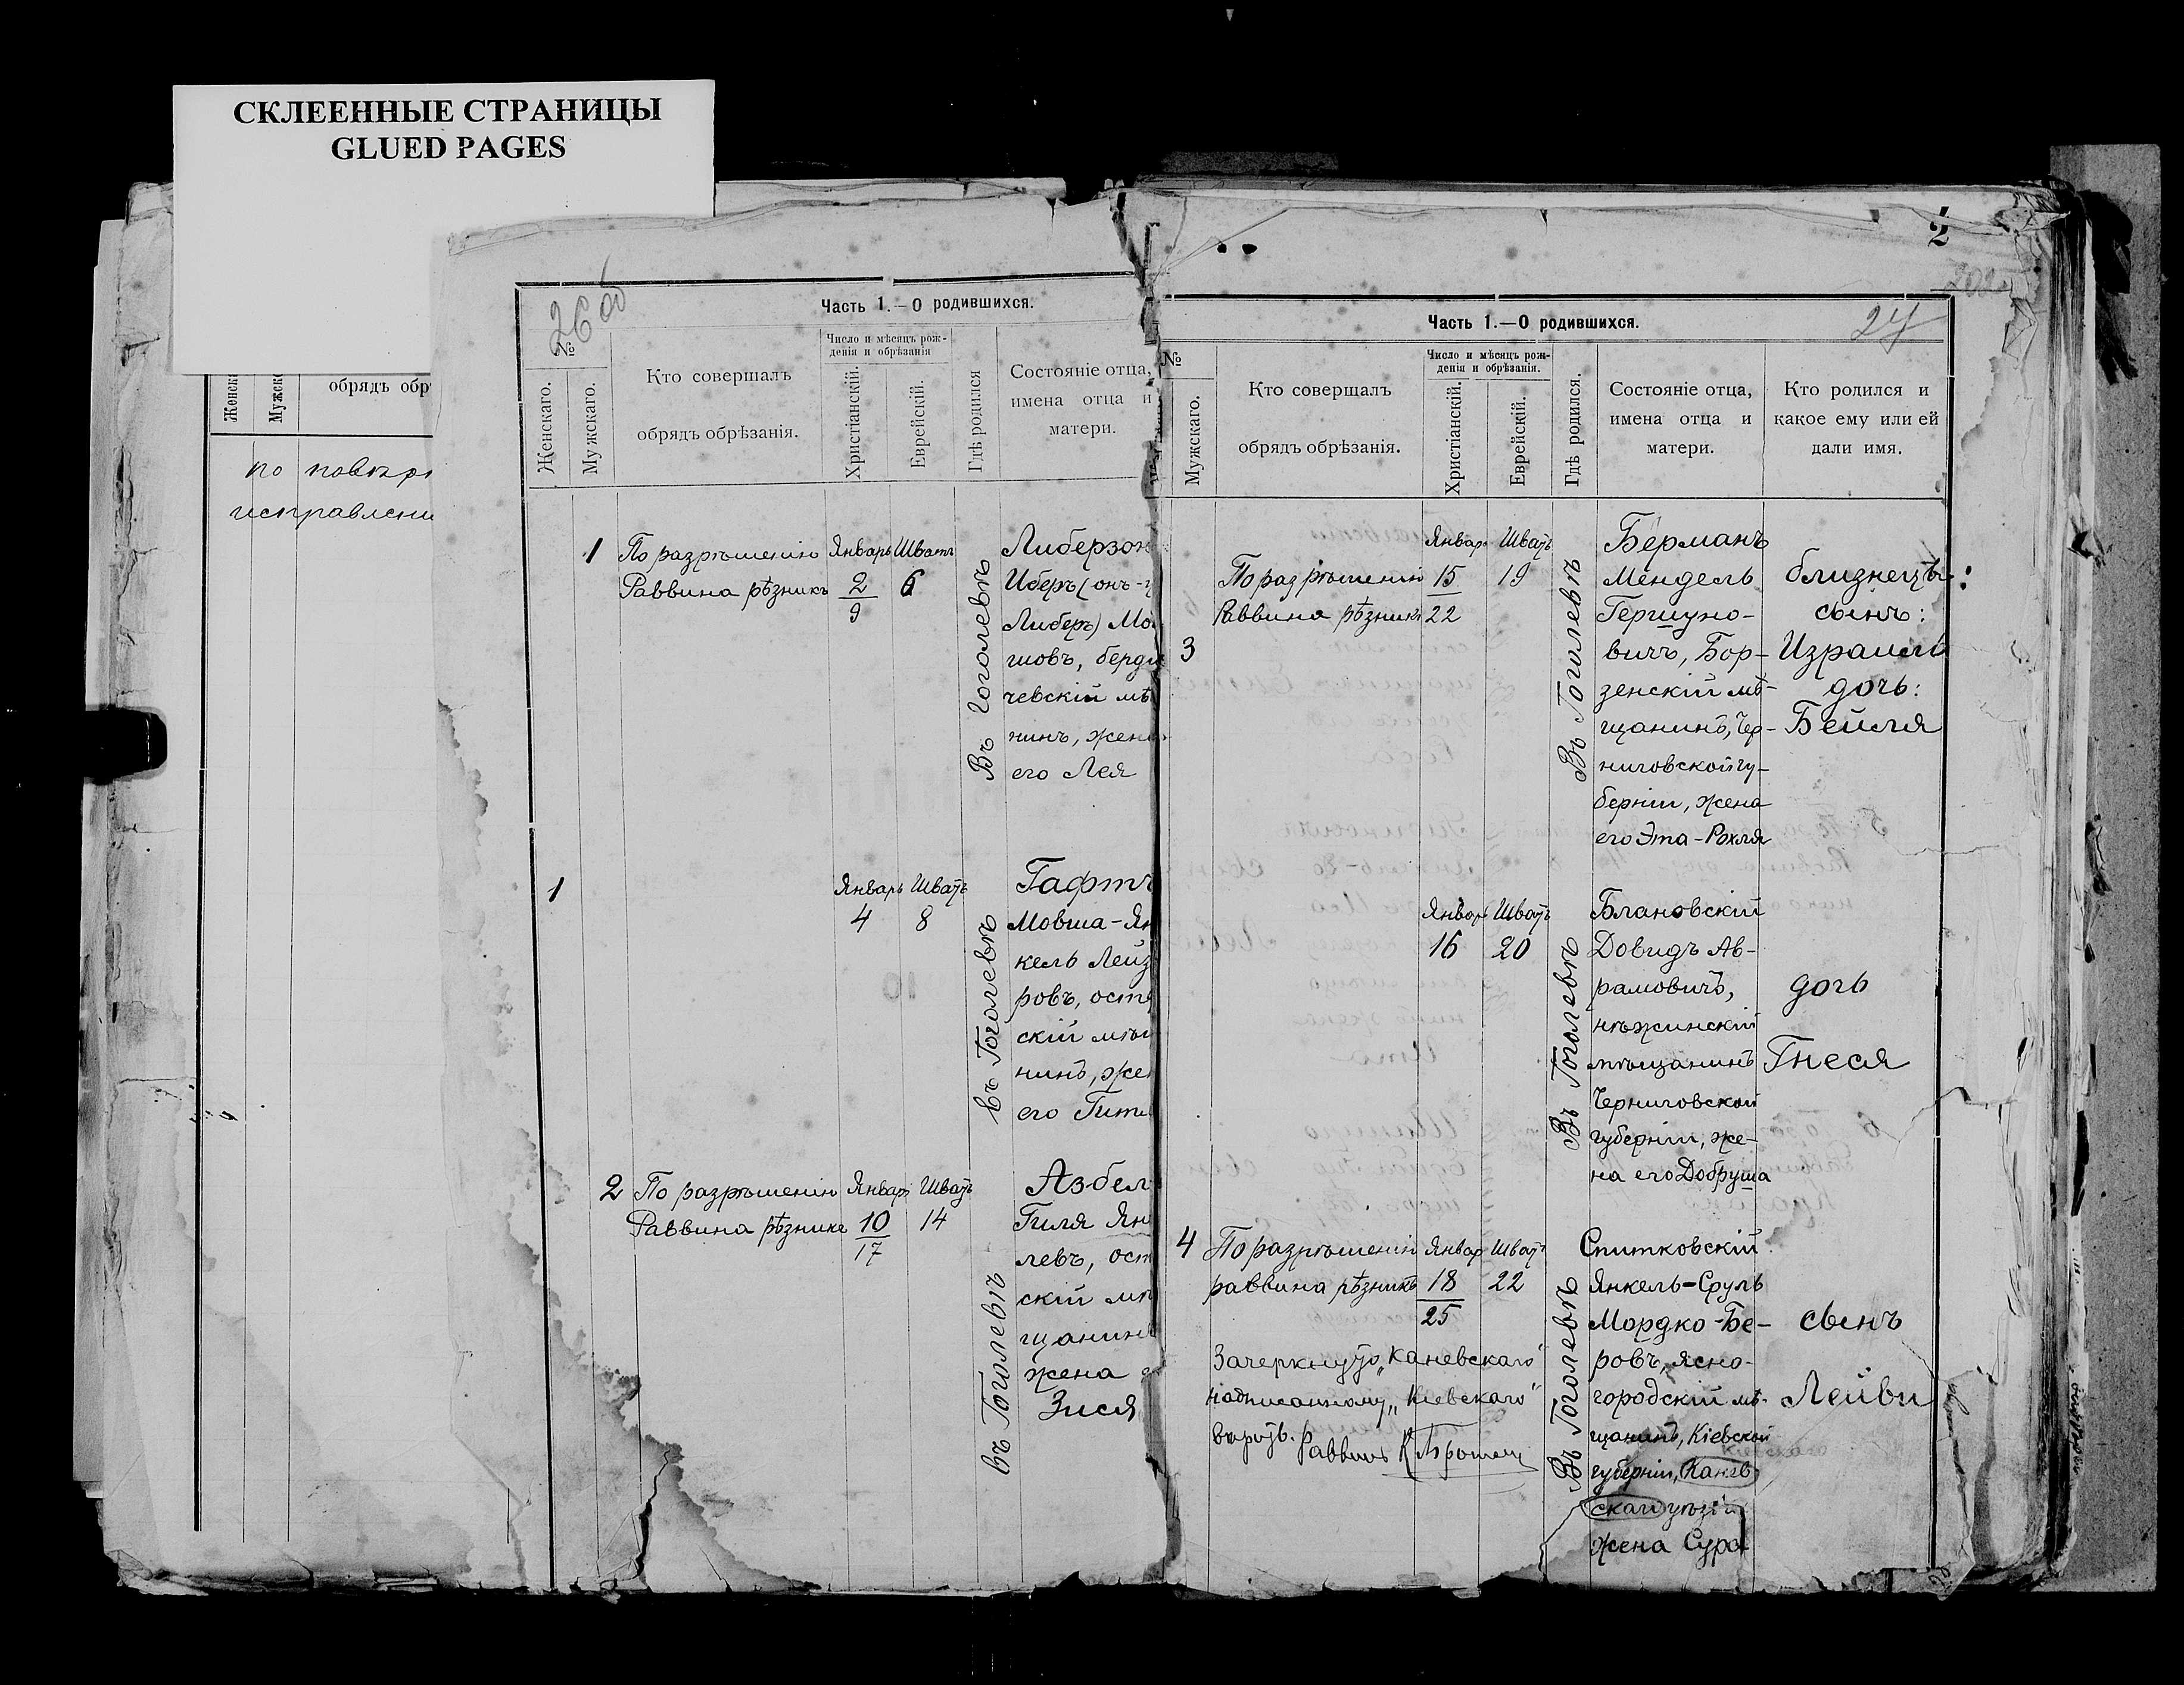 СКЛЕЕННЫЕ СТРАНИЦЫ
GLUED PAGES
обрядъ обр
по
исправлени
26 об
Часть 1.—О родившихся.
№
Женскаго.
Мужскаго.
Кто совершалъ
обрядъ обрѣзанія.
Число и мѣсяцъ рож-
денія и обрѣзанія
Христіанскій.
Еврейскій.
Гдѣ родился
Состояніе отца,
имена отца и
матери.
1 По разрѣшенію Январь Шватъ
Раввина рѣзникъ 2 6
9
Въ Гоголевѣ
Либерзон
Иберъ (онъ-
Либеръ) Мо
шовъ, берди
чевскій мѣ
нинъ, жен
его Лея
1
Январь Шватъ
4 8
въ Гоголевѣ
Гафтъ
Мовша-Ян
кель Лейз
ровъ, остр
скій мѣщ
нинъ, жен
его Гит
2 По разрѣшенію Январь Шватъ
Раввина рѣзникъ 10 14
17
въ Гоголевѣ
Азбел
Гиля Ян
левъ, ост
скій мѣ
щанинъ
жена
Зися
2
24
Часть 1.—О родившихся.
№
Мужскаго.
Кто совершалъ
обрядъ обрѣзанія.
Число и мѣсяцъ рож-
денія и обрѣзанія.
Христіанскій.
Еврейскій.
Гдѣ родился.
Состояніе отца,
имена отца и
матери.
Кто родился и
какое ему или ей
дали имя.
Январь Шватъ
По разрѣшенію 15 19
Раввина рѣзникъ 22
3
Въ Гоголевѣ
Берманъ
Мендель
Гершуно-
вичъ, Бор-
зенскій мѣ-
щанинъ, Чер-
ниговской гу-
берніи, жена
его Эта-Рохля
близнецы:
сынъ:
Израиль
дочь:
Бейля
Январь Шватъ
16 20
Въ Гоголевѣ
Блановскій
Довидъ Ав-
рамовичъ,
нѣжинскій
мѣщанинъ
Черниговской
губерніи, же-
на его Добруша
дочь
Гнеся
4 По разрѣшенію Январь Шватъ
раввина рѣзникъ 18 22
25
Въ Гоголевѣ
Спитковскій
Янкель-Сруль
Мордко-Бе-
ровъ, Ясно-
городскій мѣ-
щанинъ, Кіевской
губерніи, Канев
скаго уѣзда
жена Сура
сынъ
Лейви
Зачеркнуто „Каневскаго"
надписанному „Кіевскаго"
вѣрить. Раввинъ